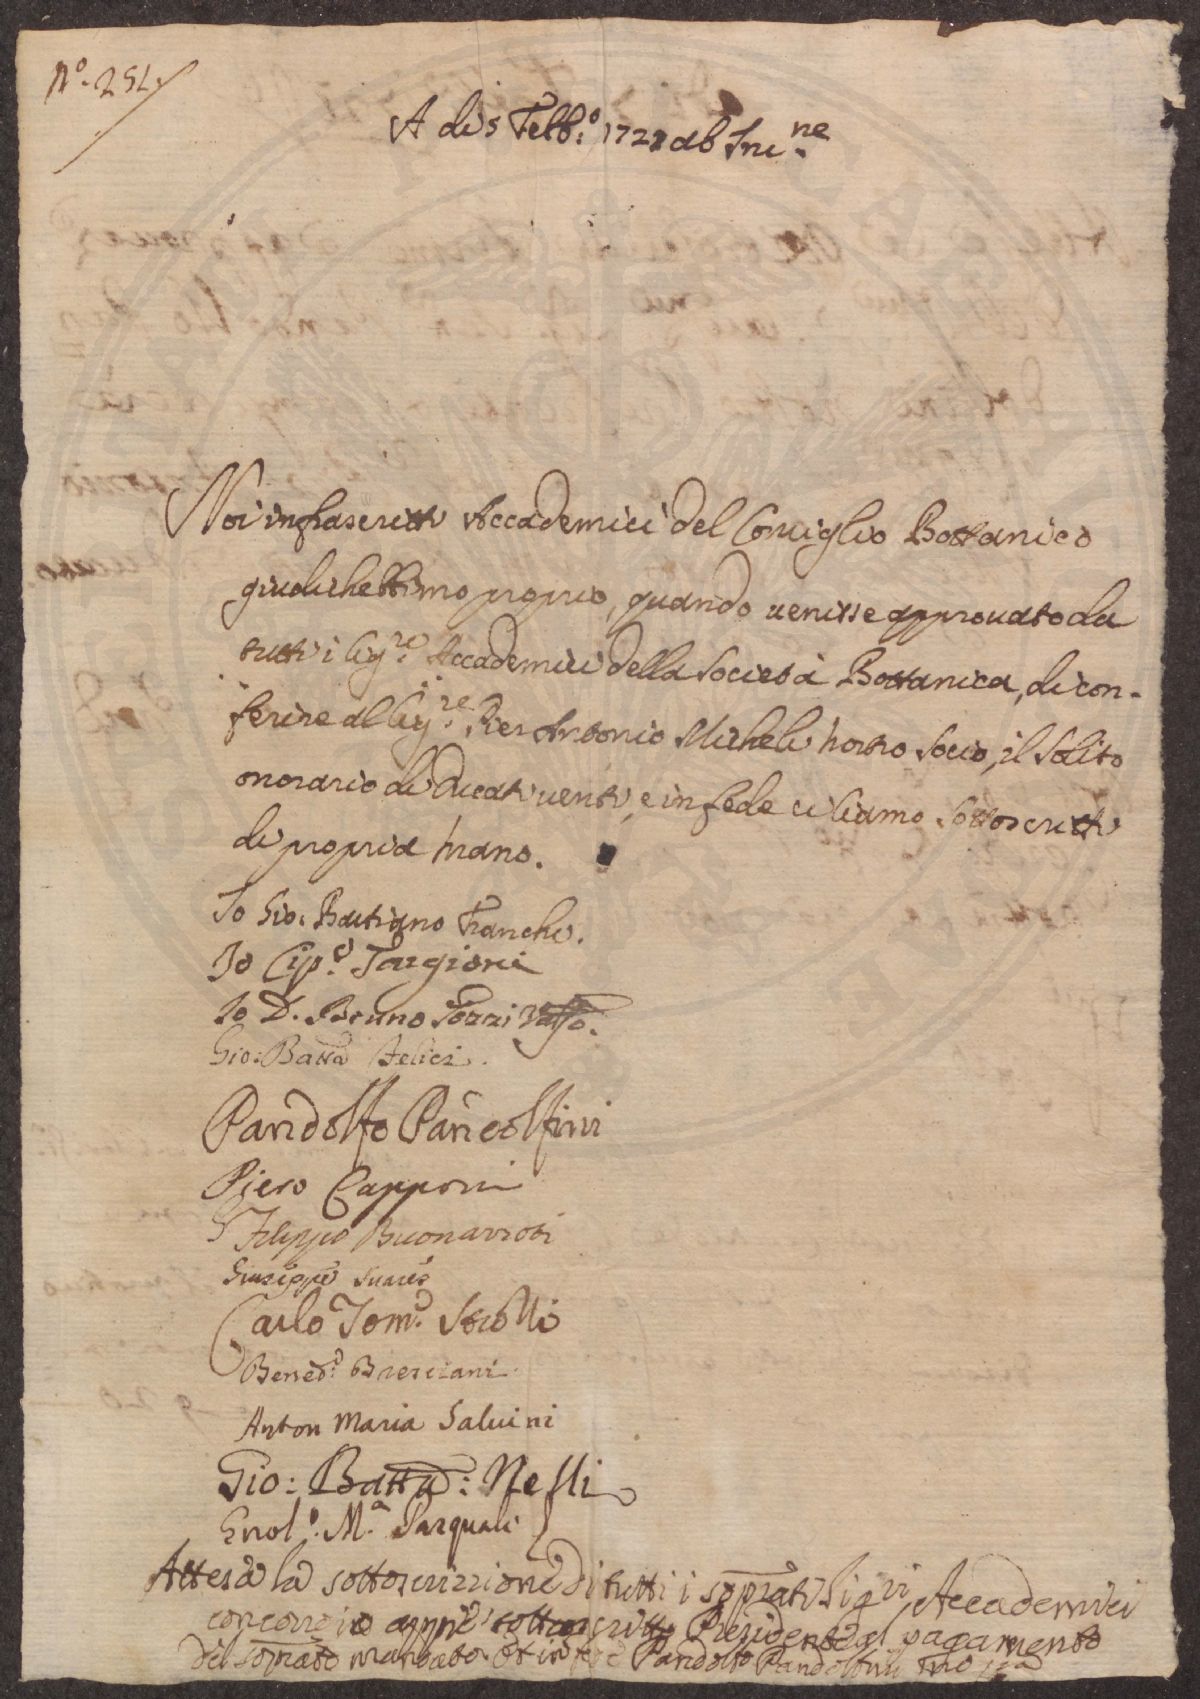 N.º 251.
A di 5 Febb.º 1721 ab Inc.ne
Noi infrascritti Accademici del Consiglio Bottanico
giudichettimo proprio, quando venisse approuato da
tutti i Sig.ri Accademici della Società Bottanica, di con-
ferire al Sig.re Pier Antonio Micheli nostro Socio, il solito
onorario di Ducati uenti, e in fede ci siamo sottoscritti
di propria mano.
Io Gio: Bastiano Franchi.
Io Cip.º Targioni
Io D. Bruno Tozzi
Gio: Batta Felici.
Pandolfo Pandolfini
Piero Capponi
Filippo Buonarroti
Giuseppe Suares
Carlo Tom.º
Bened.º Bresciani
Anton Maria Saluini
Gio: Batta: Nelli
M.a Pasquali
Attesa la sottoscrizzione di tutti i soprati Sigri Accademici
concorro io appiè sottoscritto Presidente al pagamento
del soprato mandato. Et in fede Pandolfo Pandolfini mo ppa